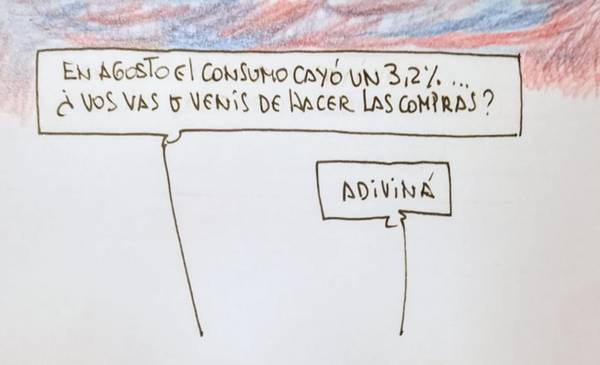 EN AGOSTO El CONSUMO CAYÓ UN 3,2%...
¿VOS VAS O VENÍS DE HACER LAS COMPRAS?
ADIVINÁ